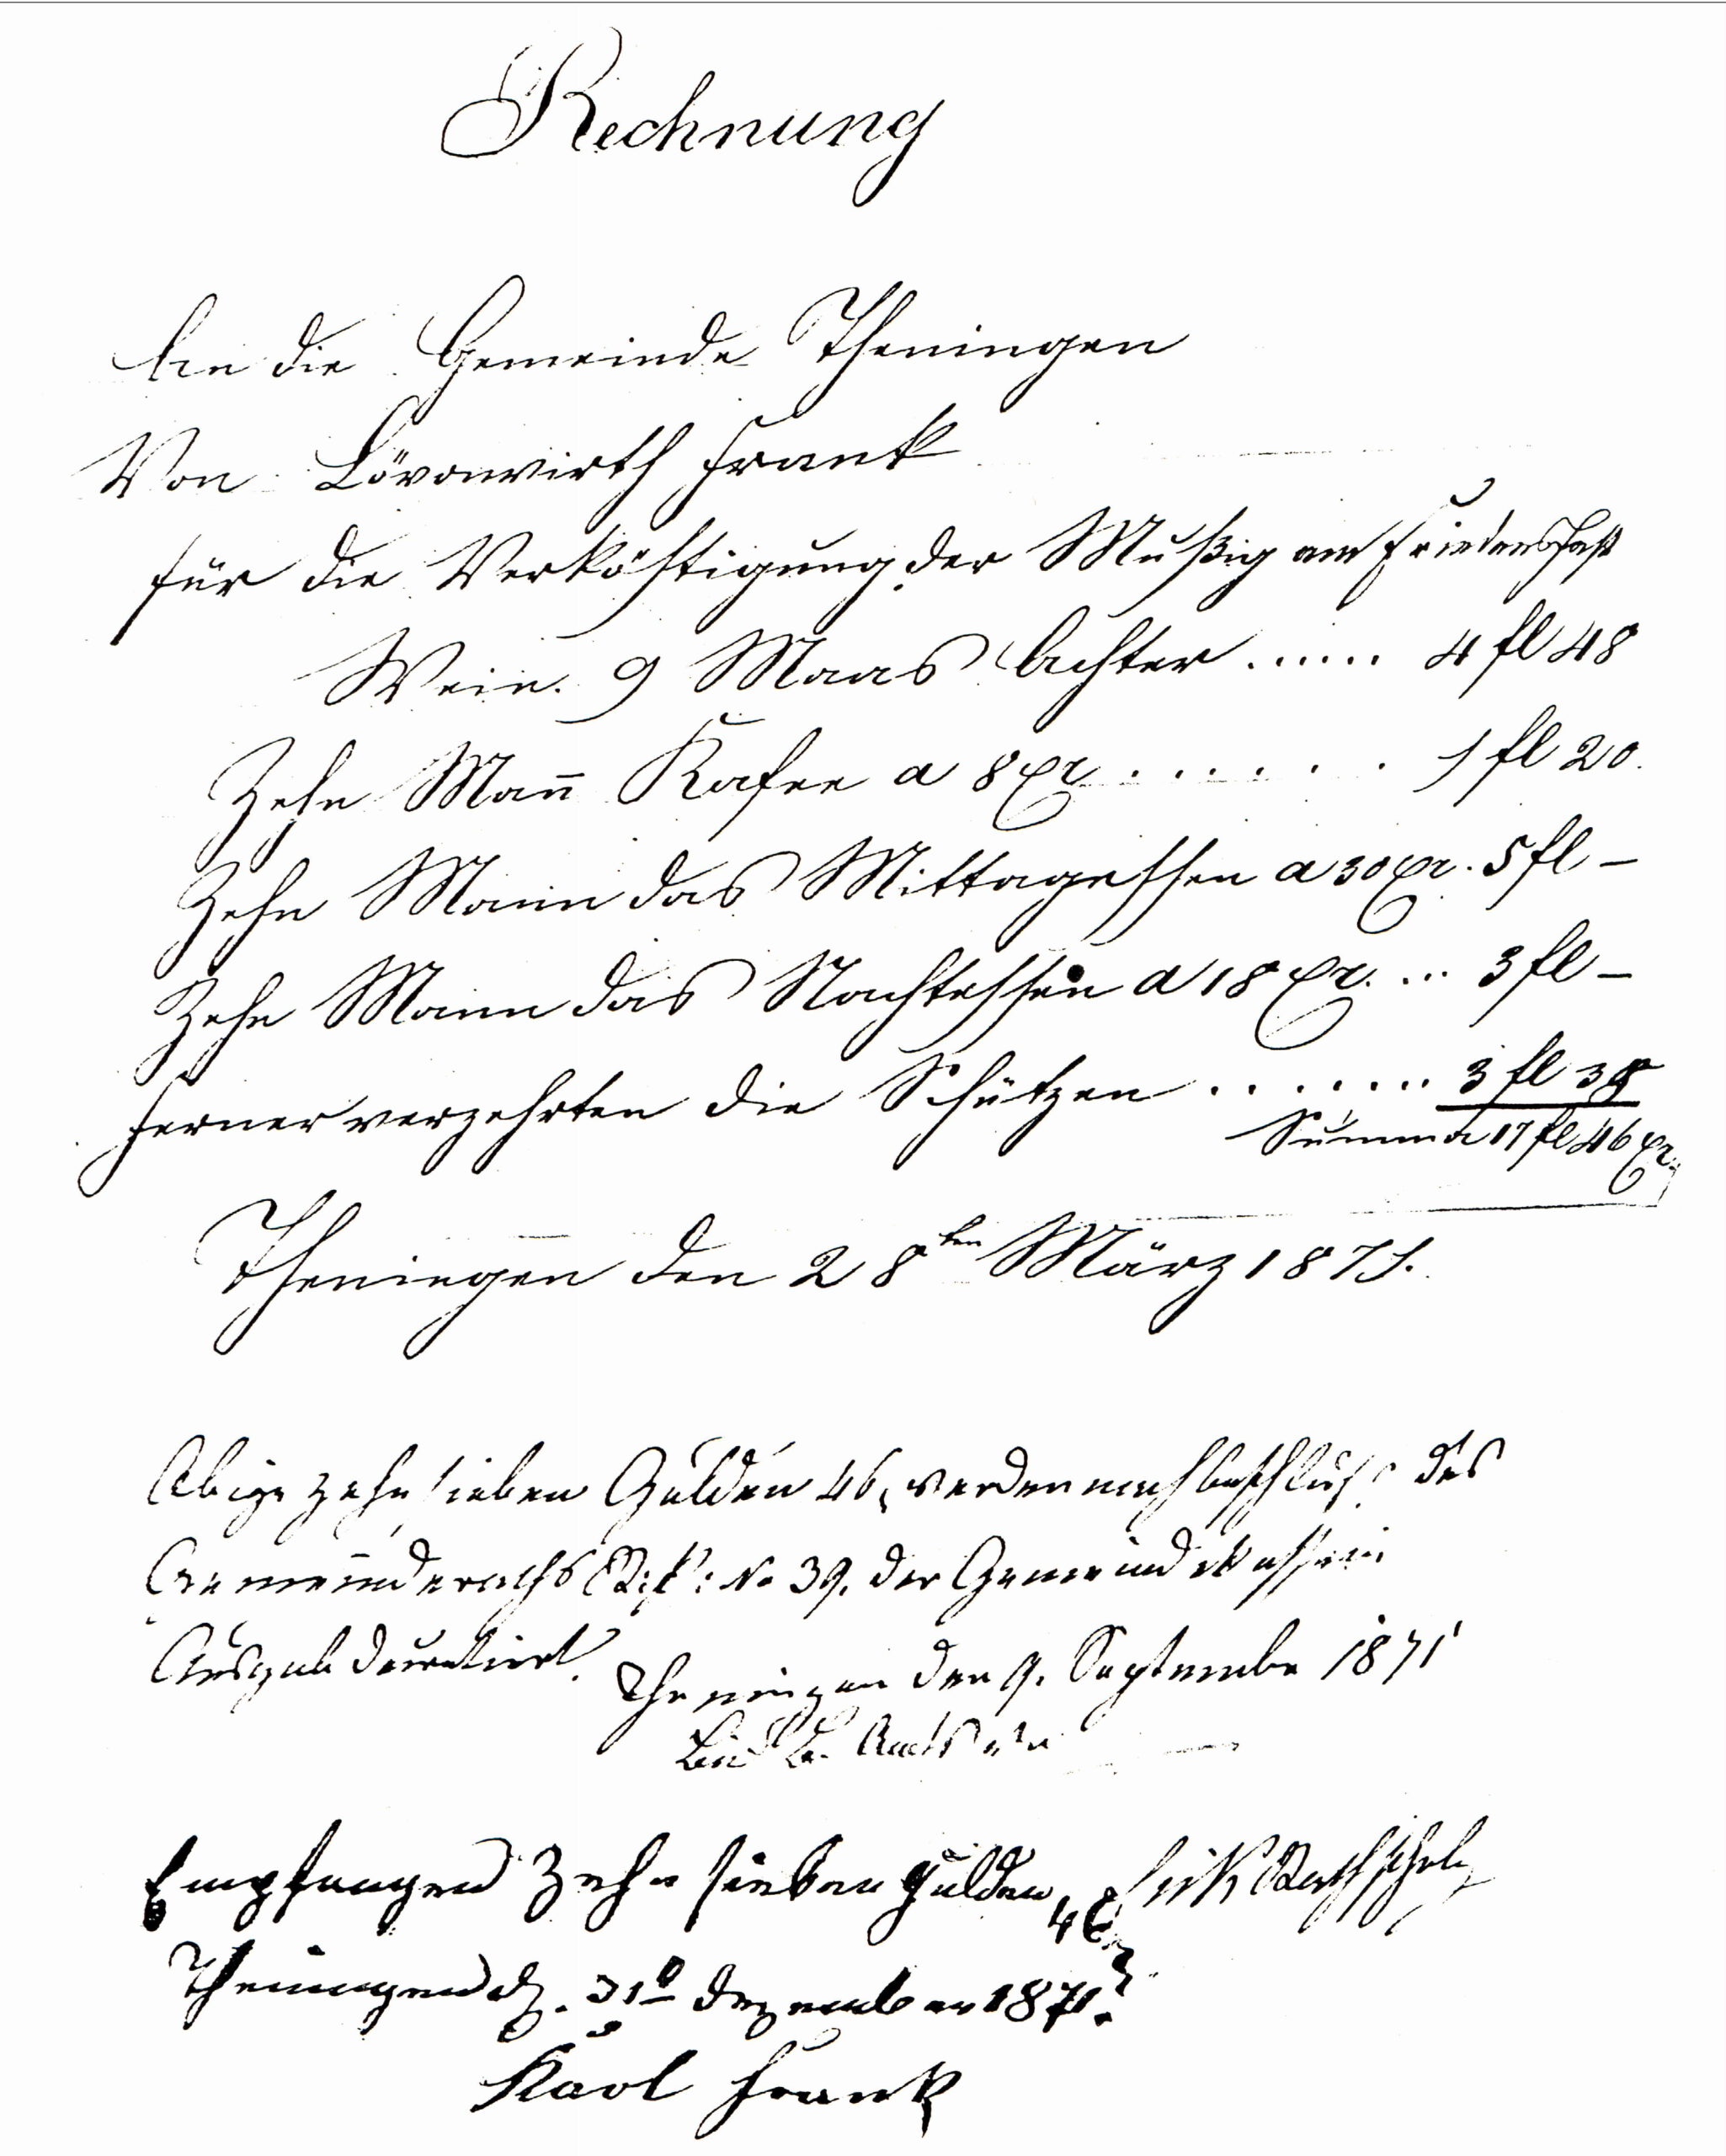 Rechnung
An die Gemeinde Theningen
Von Löwenwirth Frank
für die Verköstigung der Mußig am Friedensfest
Wein. 9 Maas Achter ...... 4 fl 48
Zehn Mañ Kafee a 8 xr ....... 1 fl 20.
Zehn Mann das Mittagessen a 30 xr. 5 fl –
Zehn Mann das Nachtessen a 18 xr. ... 3 fl –
Ferner verzehrten die Schützen ....... 3 fl 38
Summa 17 fl 46 xr.
Theningen den 28ten März 1871.
Obige zehn sieben Gulden 46, werden nach beschluß des
Gemeinderaths No 39. der Gemeindekasse in
Ausgab decretiert.
Theningen den 9. September 1871
Empfangen Zehn sieben Gulden 46 xr
Theningen d. 31 Dezember 1871.
Karl Frank